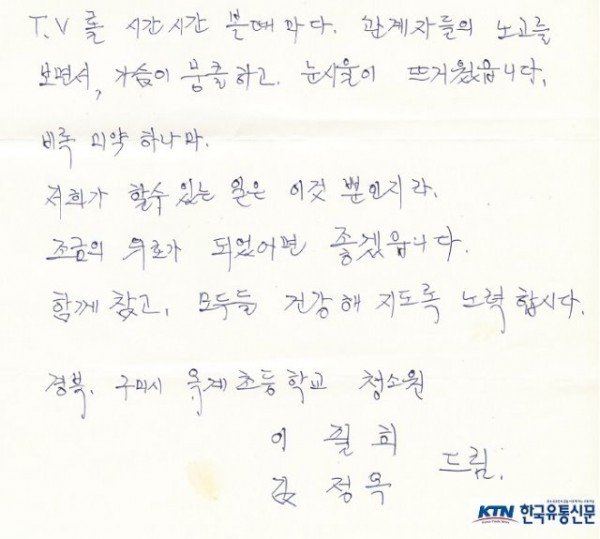 T.V 를 시간시간 볼때 마다. 관계자들의 노고를
보면서, 가슴이 뭉클하고. 눈시울이 뜨거웠읍니다.
비록 미약 하나마.
저희가 할수 있는 일은 이것 뿐인지라.
조금의 위로가 되었어면 좋겠읍니다.
함께 참고, 모두들 건강해 지도록 노력합시다.
경북. 구미시 옥계초등학교 청소원
이 필 희
김 정 옥 드림.
KTN 한국유통신문